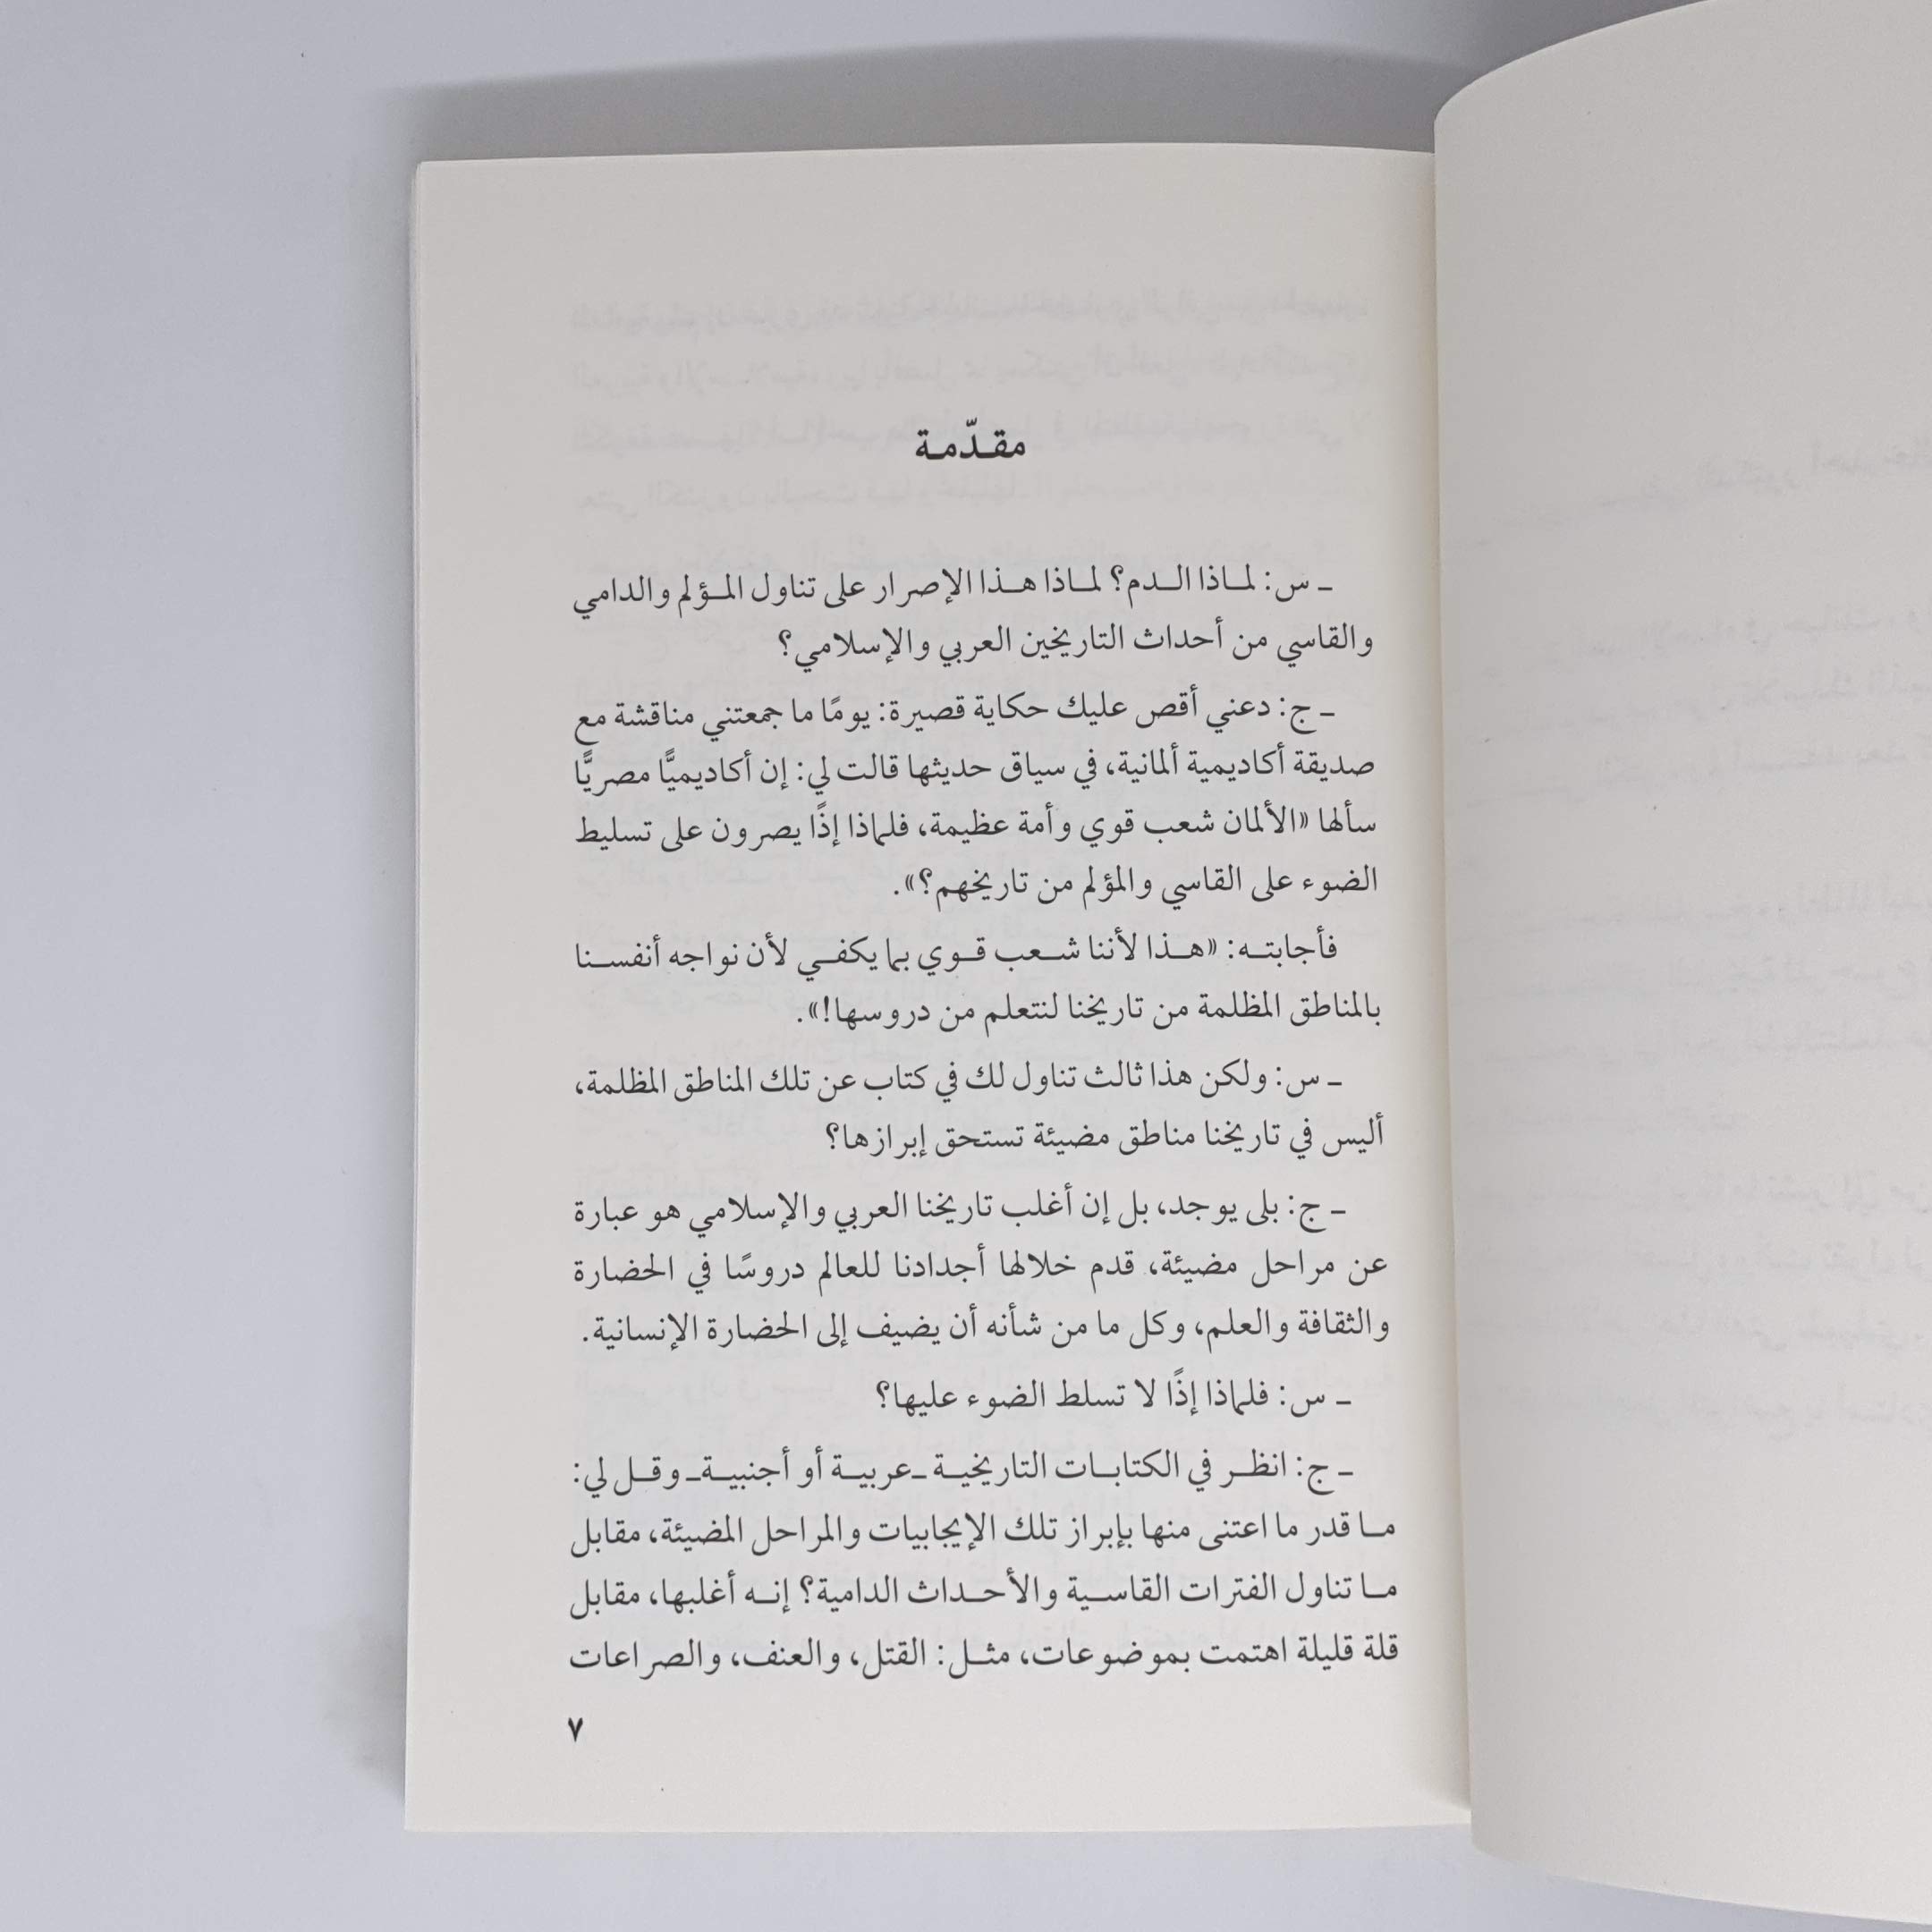 مقدّمة
ـ س: لماذا الدم؟ لماذا هذا الإصرار على تناول المؤلم والدامي
والقاسي من أحداث التاريخين العربي والإسلامي؟
ـ ج: دعني أقص عليك حكاية قصيرة: يومًا ما جمعتني مناقشة مع
صديقة أكاديمية ألمانية، في سياق حديثها قالت لي: إن أكاديميًّا مصريًّا
سألها «الألمان شعب قوي وأمة عظيمة، فلماذا إذًا يصرون على تسليط
الضوء على القاسي والمؤلم من تاريخهم؟».
فأجابته: «هذا لأننا شعب قوي بما يكفي لأن نواجه أنفسنا
بالمناطق المظلمة من تاريخنا لنتعلم من دروسها!».
ـ س: ولكن هذا ثالث تناول لك في كتاب عن تلك المناطق المظلمة،
أليس في تاريخنا مناطق مضيئة تستحق إبرازها؟
ـ ج: بلى يوجد، بل إن أغلب تاريخنا العربي والإسلامي هو عبارة
عن مراحل مضيئة، قدم خلالها أجدادنا للعالم دروسًا في الحضارة
والثقافة والعلم، وكل ما من شأنه أن يضيف إلى الحضارة الإنسانية.
ـ س: فلماذا إذًا لا تسلط الضوء عليها؟
ـ ج: انظر في الكتابات التاريخية ـعربية أو أجنبيةـ وقل لي:
ما قدر ما اعتنى منها بإبراز تلك الإيجابيات والمراحل المضيئة، مقابل
ما تناول الفترات القاسية والأحداث الدامية؟ إنه أغلبها، مقابل
قلة قليلة اهتمت بموضوعات، مثل: القتل، والعنف، والصراعات
٧